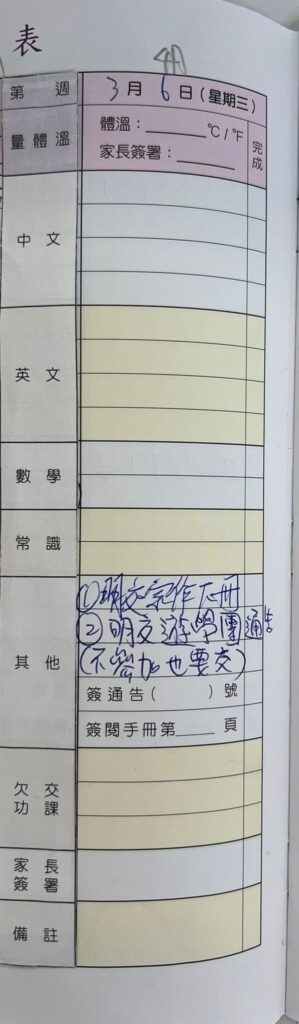 表
第 週
3月6日(星期三)
量體溫
體溫：______℃/℉
家長簽署：______
完成
中文
英文
數學
常識
其他
①明交寫作下冊
②明交遊學團通告
(不參加也要交)
簽通告( )號
簽閱手冊第____頁
欠交功課
家長簽署
備註